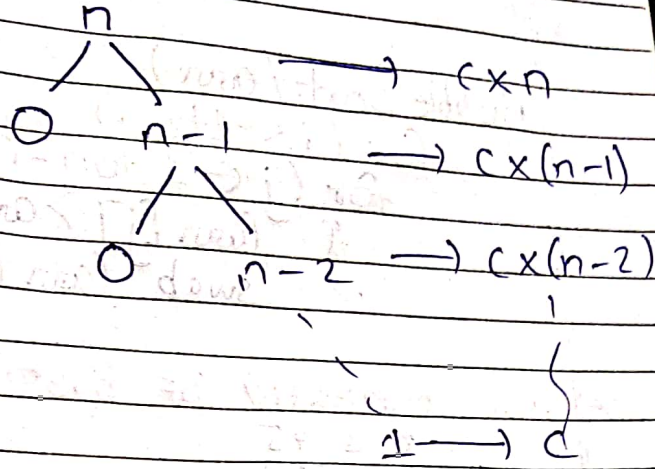 n
→ c×n
0 n-1 → c×(n-1)
0 n-2 → c×(n-2)
1 → c